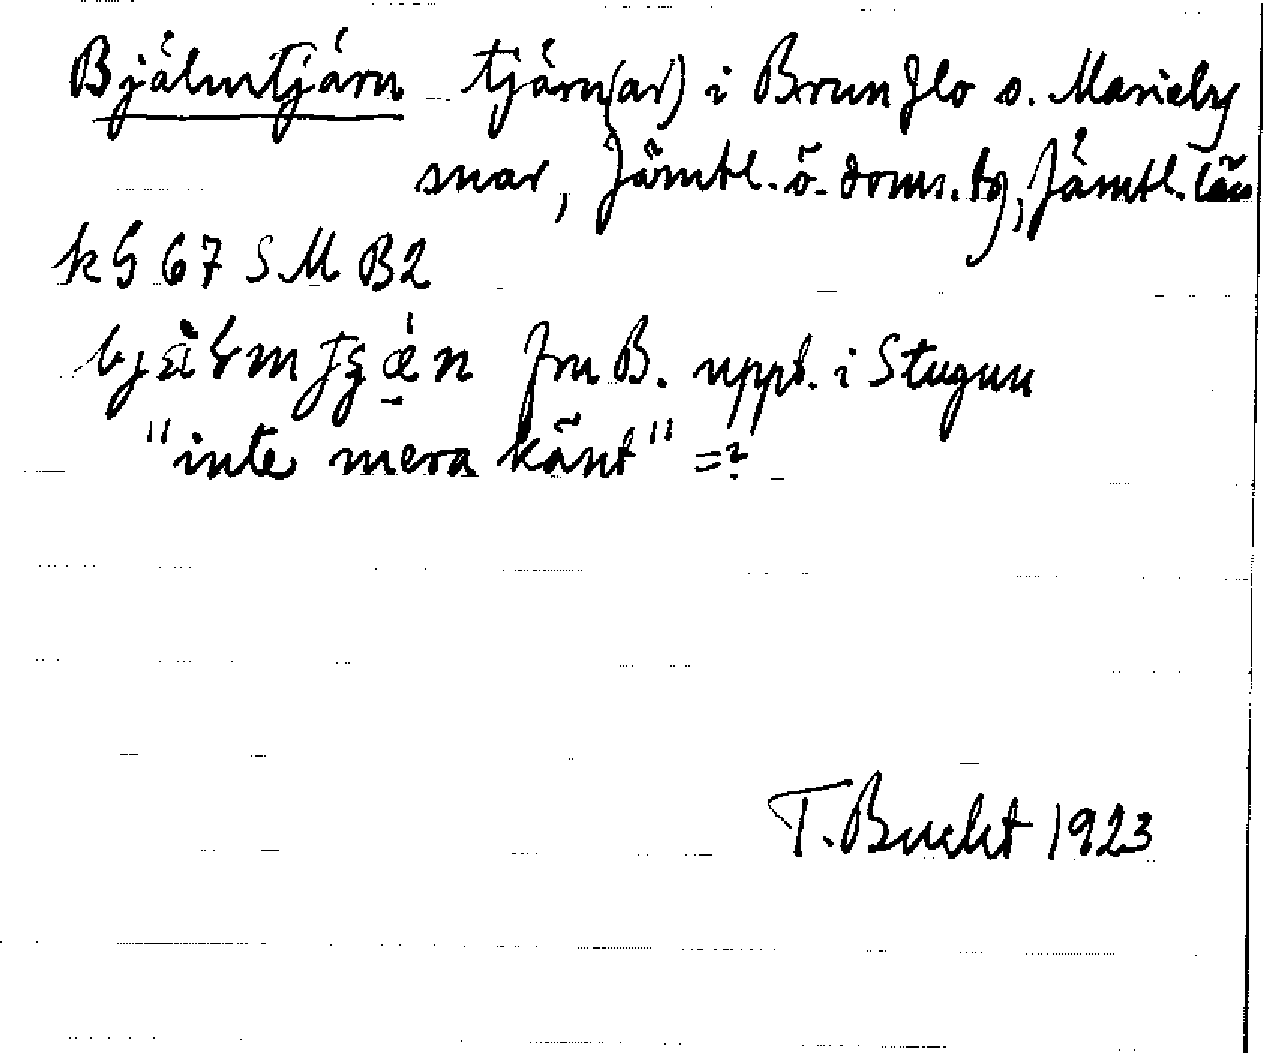 Bjälmtjärn tjärn(ar) i Brunflo s. Marieby
snar, Jämtl. ö. doms. tg, Jämtl. län
kG 67 SM B2
från B. uppt. i Stugun
"inte mera känt" =?
T. Bucht 1923